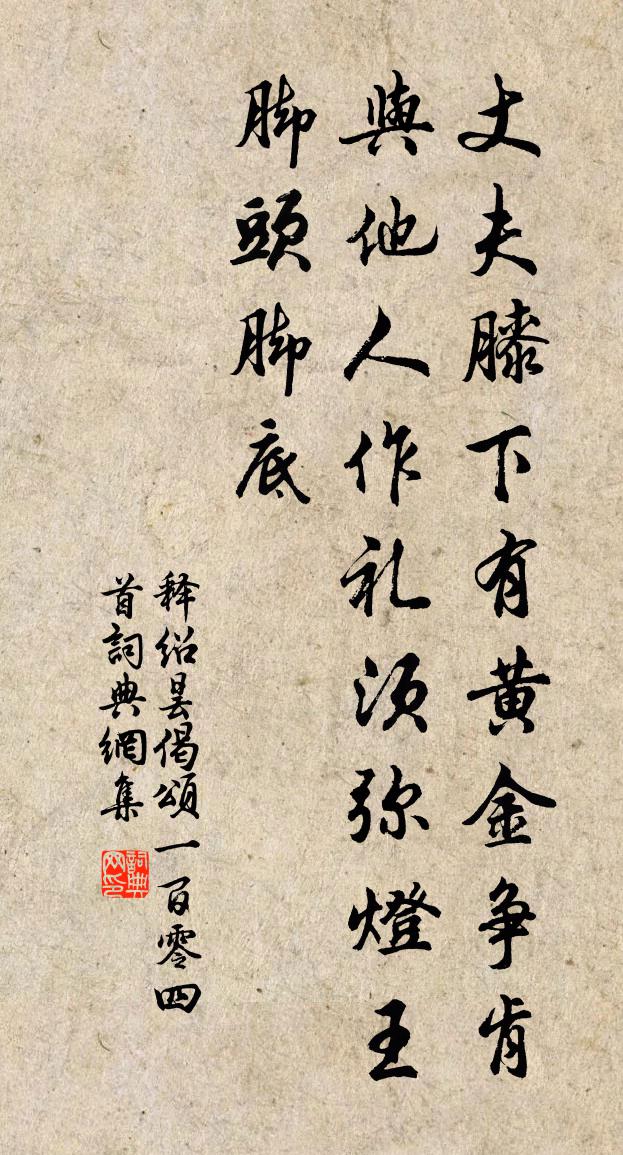 丈夫膝下有黄金争肯
與他人作礼须弥燈王
脚頭脚底
释紹昙偈頌一百零四
首詞典網集
詞典网印